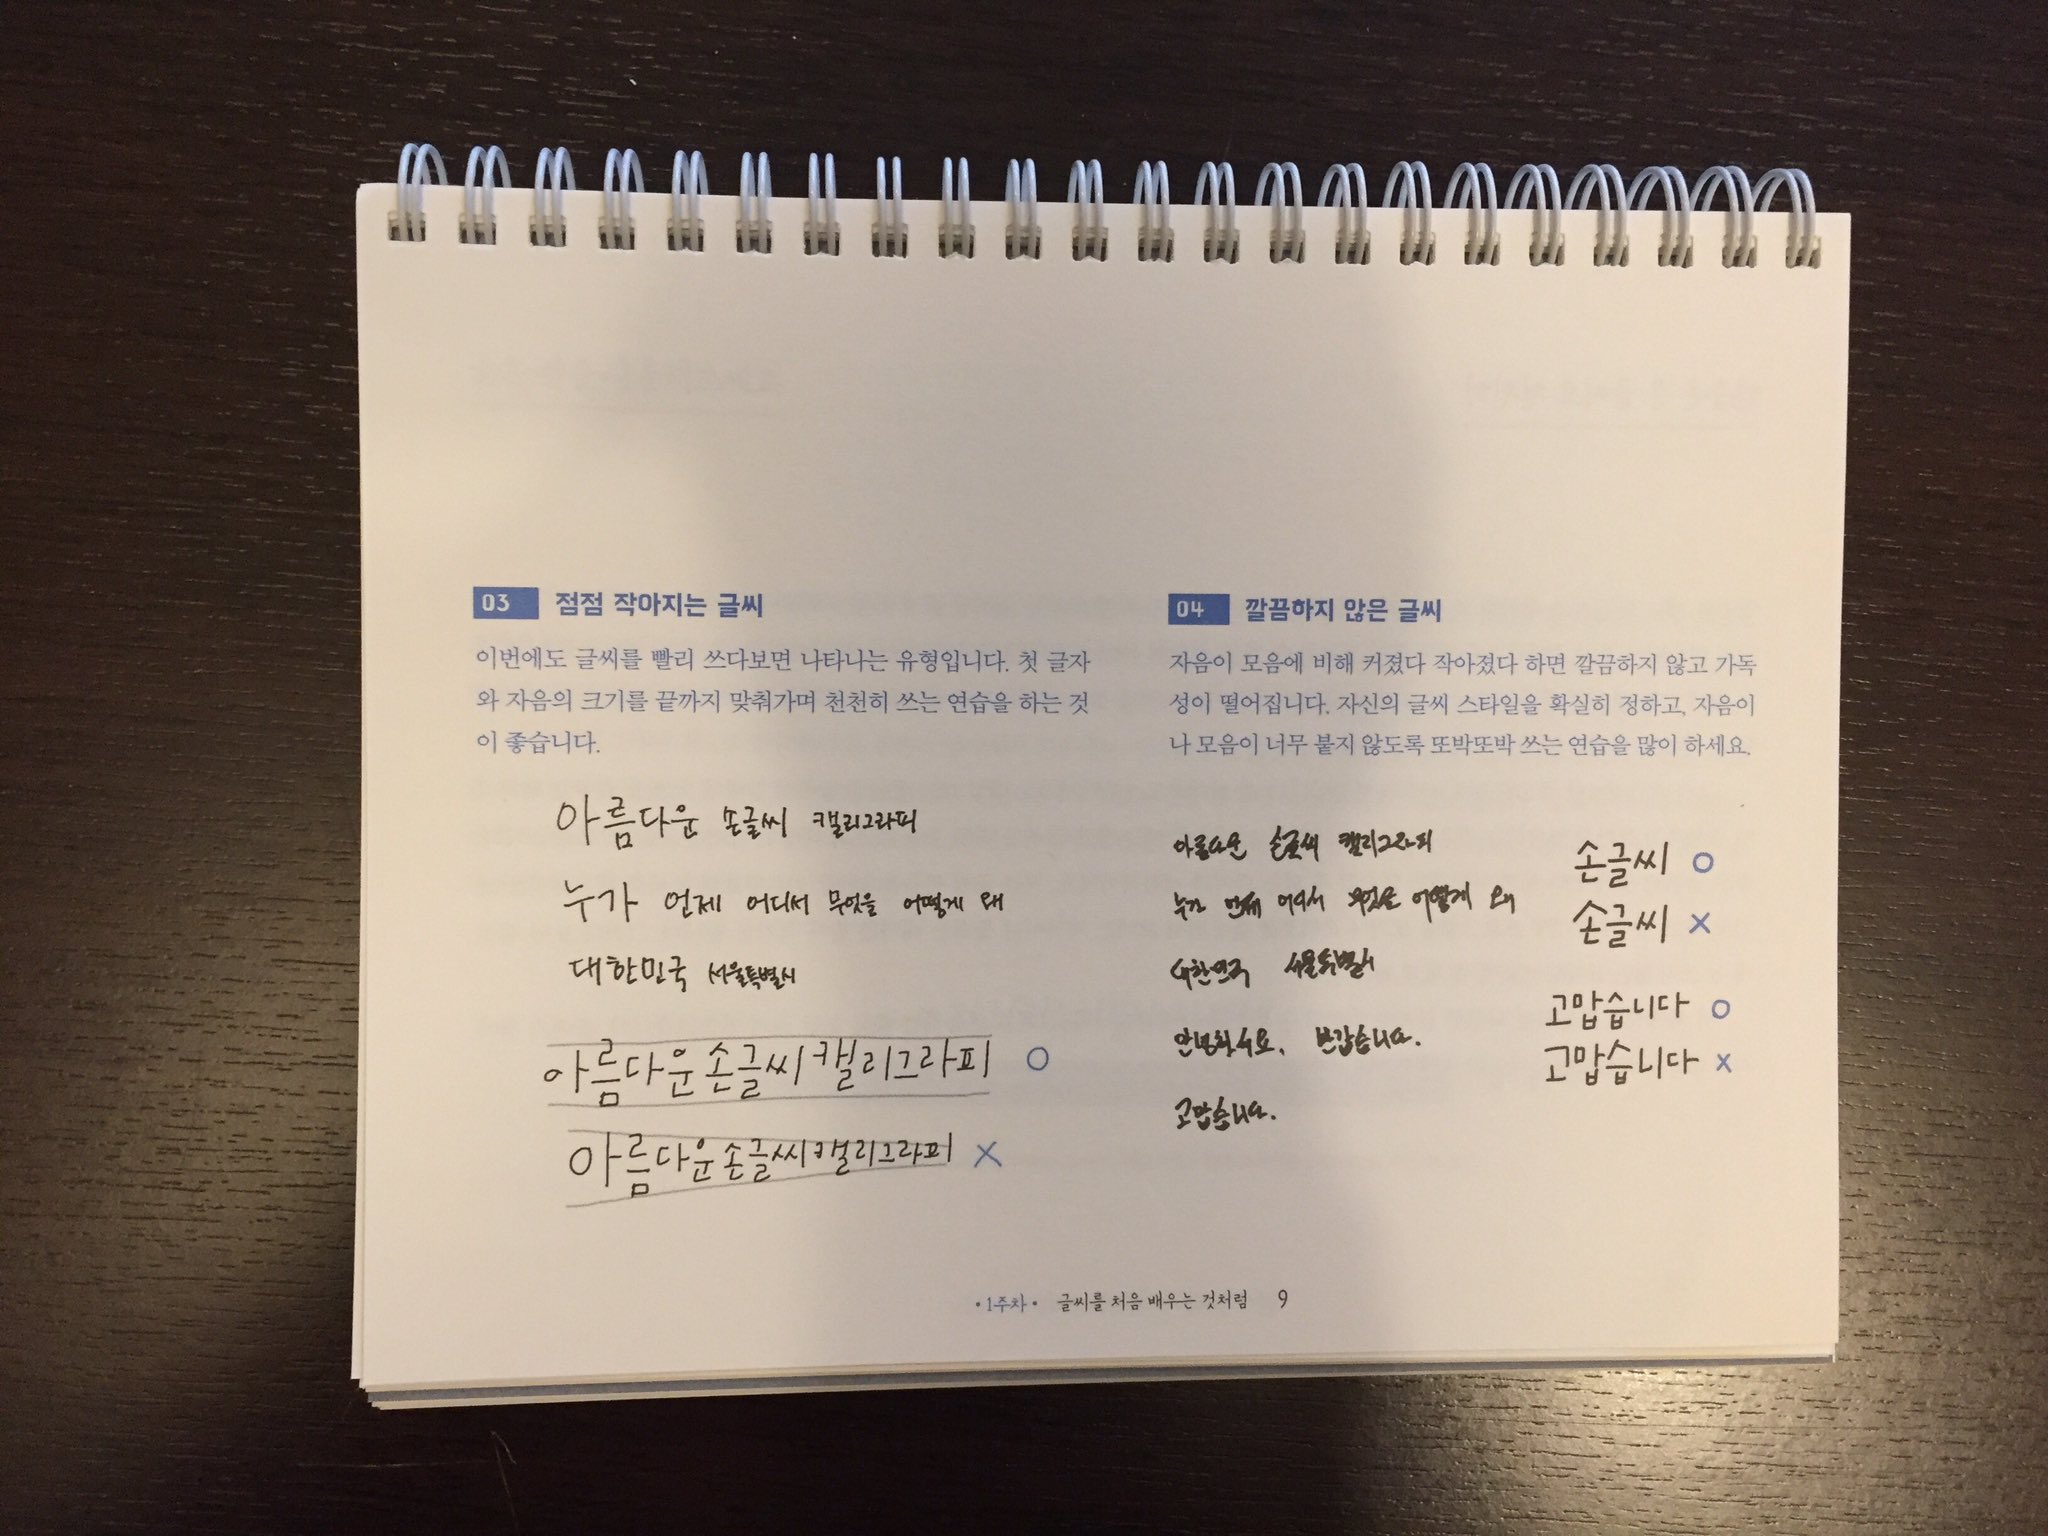 03 점점 작아지는 글씨
이번에도 글씨를 빨리 쓰다보면 나타나는 유형입니다. 첫 글자
와 자음의 크기를 끝까지 맞춰가며 천천히 쓰는 연습을 하는 것
이 좋습니다.
아름다운 손글씨 캘리그라피
누가 언제 어디서 무엇을 어떻게 왜
대한민국 서울특별시
아름다운손글씨캘리그라피 O
아름다운손글씨캘리그라피 X
04 깔끔하지 않은 글씨
자음이 모음에 비해 커졌다 작아졌다 하면 깔끔하지 않고 가독
성이 떨어집니다. 자신의 글씨 스타일을 확실히 정하고, 자음이
나 모음이 너무 붙지 않도록 또박또박 쓰는 연습을 많이 하세요.
아름다운 손글씨 캘리그라피
누가 언제 어디서 무엇을 어떻게 왜
대한민국 서울특별시
안녕하세요, 반갑습니다.
고맙습니다.
손글씨 O
손글씨 X
고맙습니다 O
고맙습니다 X
•1주차• 글씨를 처음 배우는 것처럼 9